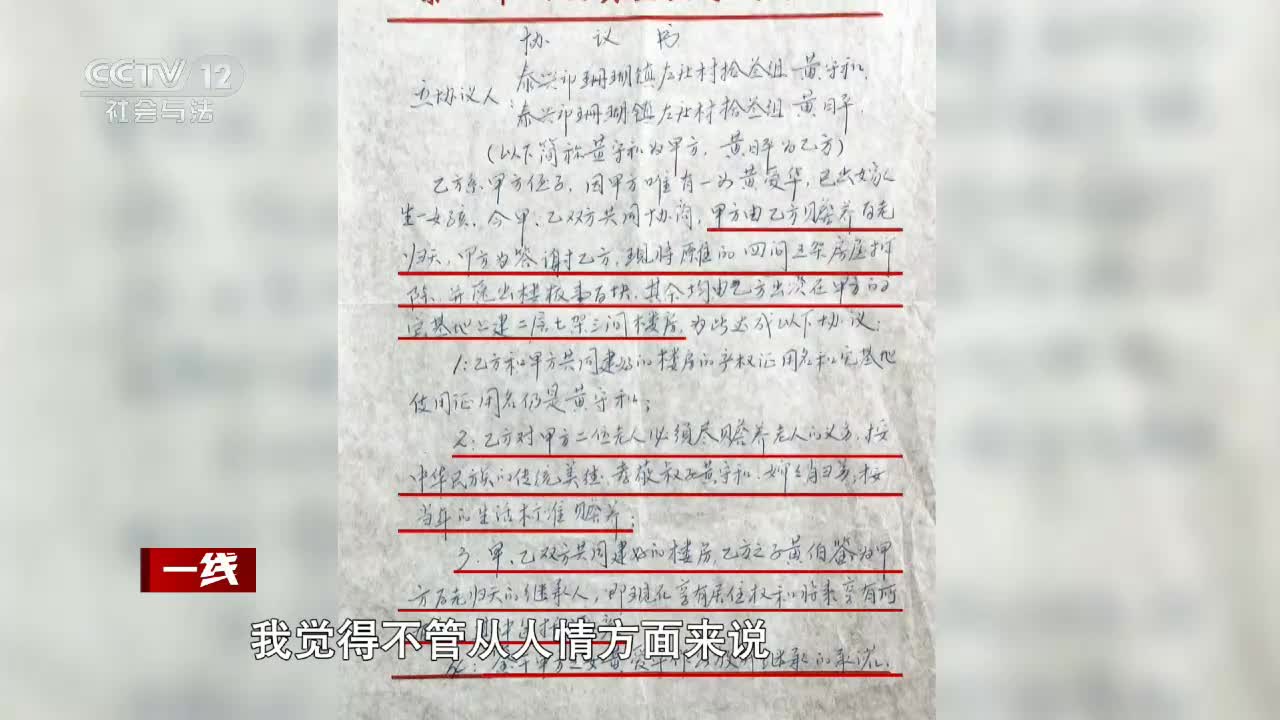 CCTV 12
社会与法
协 议 书
立协议人:泰兴市珊瑚镇左社村拾叁组 黄守和,
泰兴市珊瑚镇左社村拾叁组 黄日平.
(以下简称黄守和为甲方,黄日平为乙方)
乙方系甲方侄子,因甲方唯有一女黄爱华,已出嫁
生一女孩.今甲、乙双方共同协商,甲方由乙方赡养百老
归天,甲方为答谢乙方,现将原住的四间五架房屋拆
除,并 出楼板 百块,其余均由乙方出资在甲方的
宅基地上建二层七架三间楼房,为此达成以下协议:
1:乙方和甲方共同建好的楼房的产权证用名和宅基地
使用证用名仍是黄守和;
2:乙方对甲方二位老人必须尽赡养老人的义务,按
中华民族的传统美德,孝敬叔父黄守和、婶 ,按
当年的生活标准赡养;
3.甲、乙双方共同建好的楼房,乙方之子黄伯 为甲
方百老归天的继承人,即现在享有居住权和将来享有所
一线
我觉得不管从人情方面来说
继承的承诺.